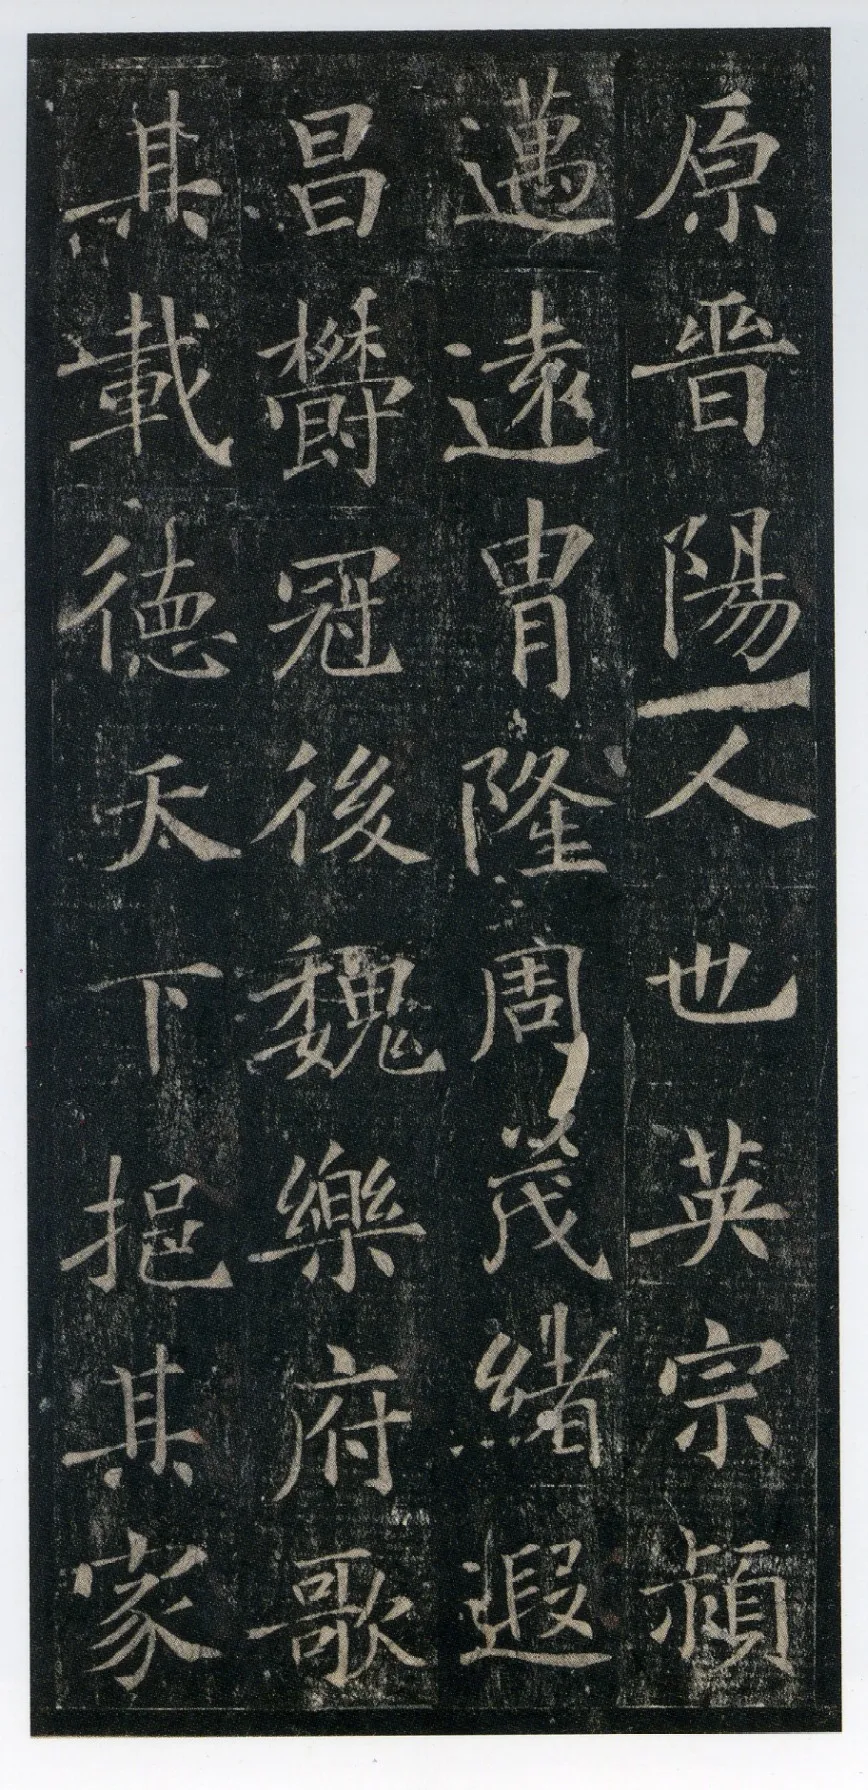 原晉陽人也英宗潁
邁遠胄隆周茂緒遐
昌欝冠後魏樂府歌
其載德天下挹其家